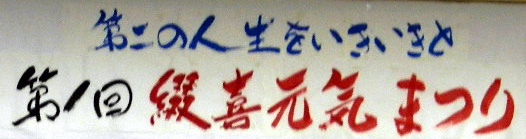 第二の人生をいきいきと
第1回 綴喜元気まつり